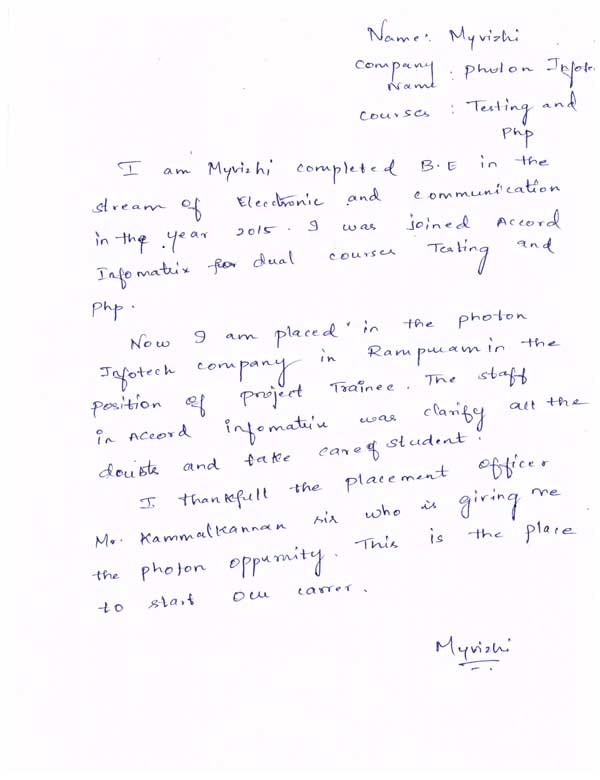 Name: Myvizhi
Company : photon Infote.
Name
Courses : Testing and
Php
I am Myvizhi completed B.E in the
stream of Elecctronic and communication
in the year 2015. I was joined Accord
Infomatix for dual courses Testing and
Php.
Now I am placed in the photon
Infotech company in Rampuram in the
position of project Trainee. The staff
in Accord infomatix was clarify all the
doubts and take care of student.
I thankfull the placement officer
Mr. Kammalkannan sir who is giving me
the photon oppurnity. This is the place
to start our carrer.
Myvizhi